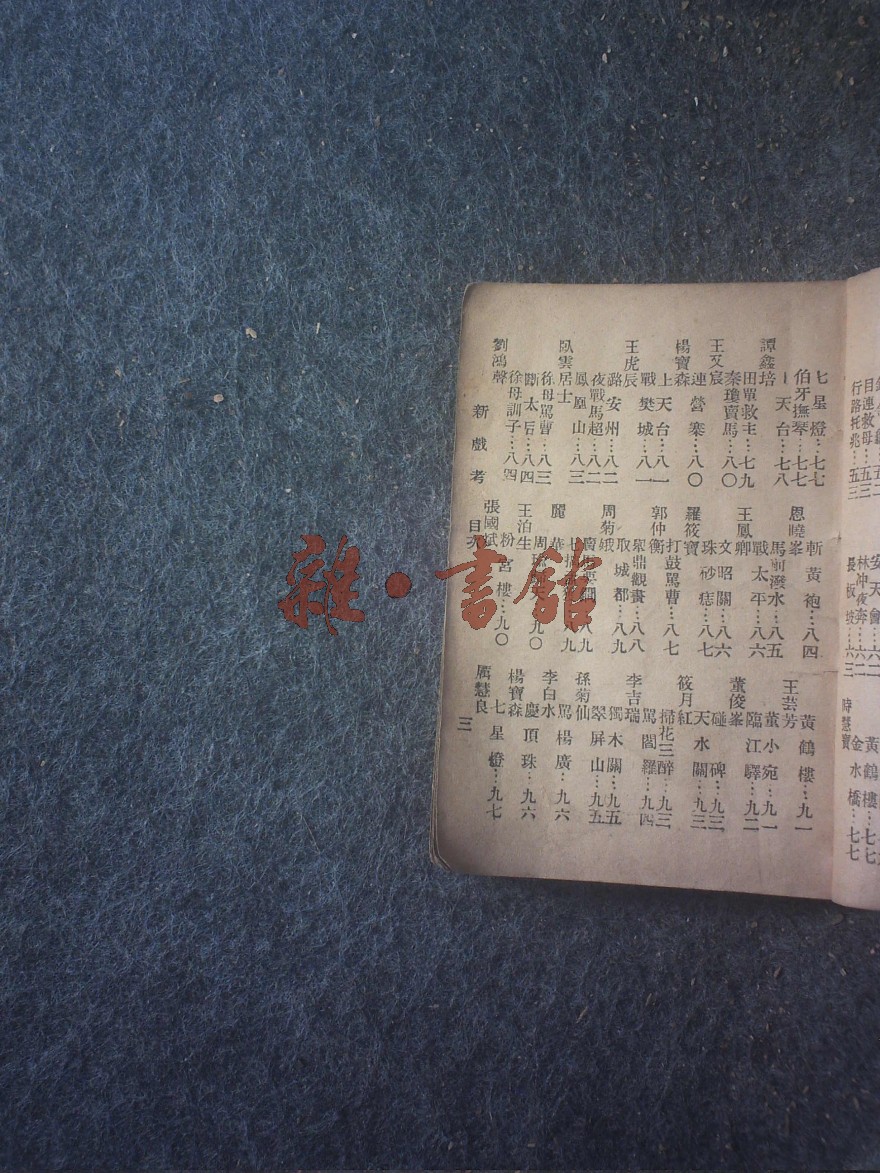 行路托兆…五三
安天會…六二
林冲夜奔…六二
長板坡…六三
時慧寶
黃鶴樓…七七
金水橋…七七
七星燈…七七
伯牙撫琴…七七
上天台…七八
譚鑫培
田單救主…七九
秦瓊賣馬…八〇
王又宸
連營寨…八〇
楊寶森
上天台…八一
戰樊城…八一
王虎辰
潞安州…八二
夜戰馬超…八二
鳳凰山…八三
臥雲居士
徐母罵曹…八三
斷太后…八四
徐母訓子…八四
劉鴻聲
恩曉峯
斬黃袍…八四
馬前潑水…八五
戰太平…八六
王鳳卿
文昭關…八六
珠砂痣…八七
羅筱寶
打鼓罵曹…八七
郭仲衡
舉鼎觀畫…八八
取城都…八九
周菊娥
八九
八九
王泊生
九〇
粉宮樓…九〇
張國斌
王芸芳
黃鶴樓…九一
董小宛…九一
臨江驛…九二
董俊峯
碰碑…九三
天水關…九三
筱月紅
掃花三醉…九三
罵閻羅…九四
李吉瑞
獨木關…九五
翠屏山…九五
孫菊仙
罵楊廣…九六
李白水
慶頂珠…九六
楊寶森
七星燈…九七
厲慧良
新戲考 目次 三
雜·書館